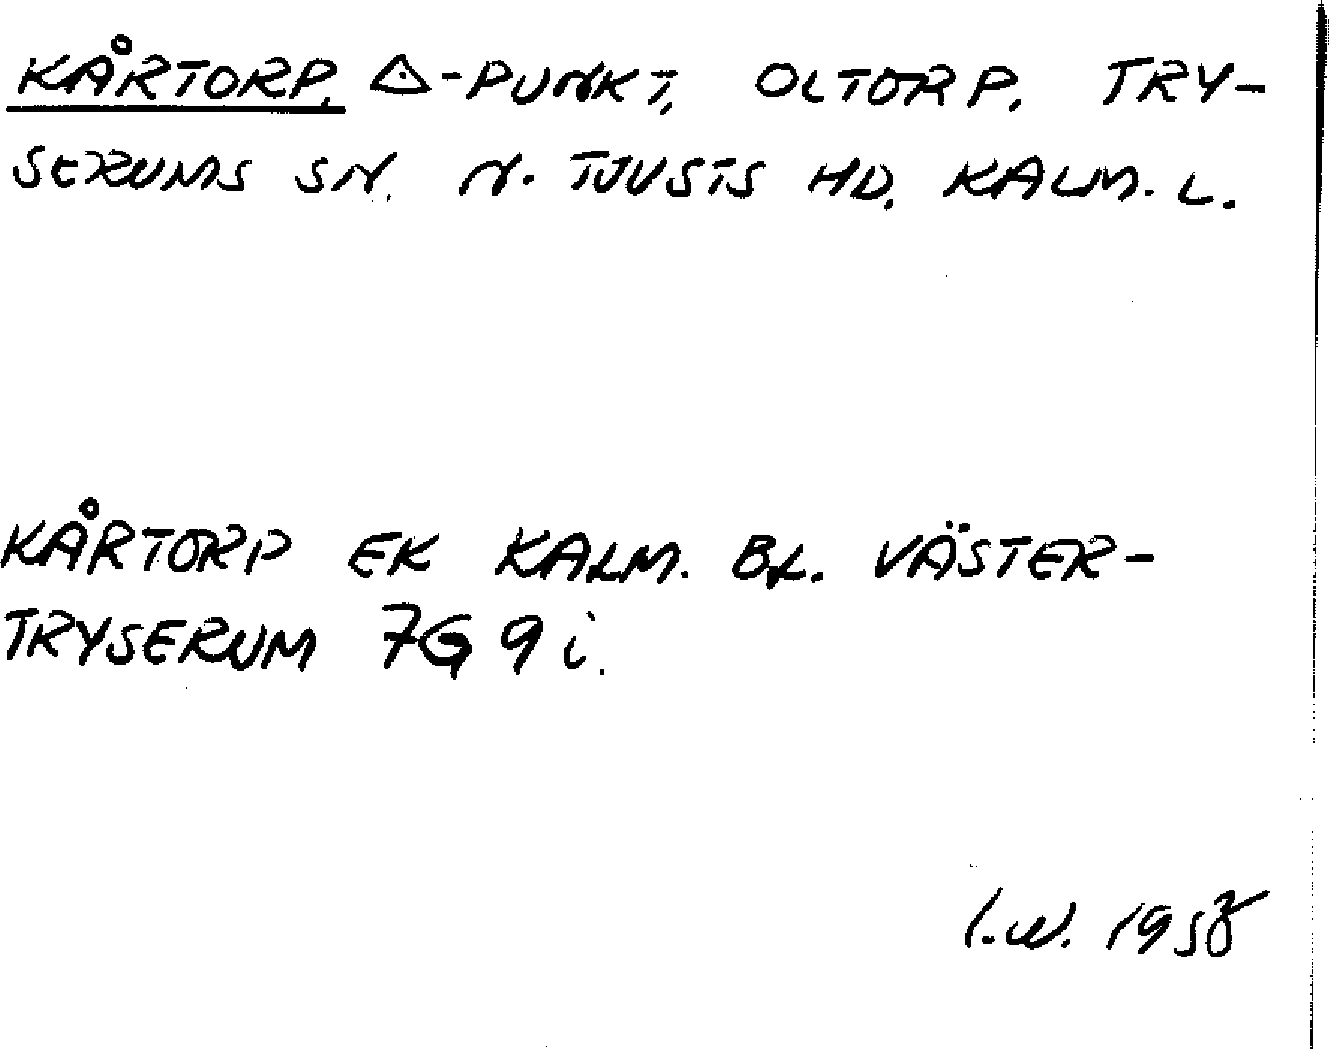 KÅRTORP. △-PUNKT, OLTORP. TRY-
SERUMS SN. N. TJUSTS HD. KALM. L.
KÅRTORP EK KALM. BL. VÄSTER-
TRYSERUM 7G 9i.
I.W. 1958